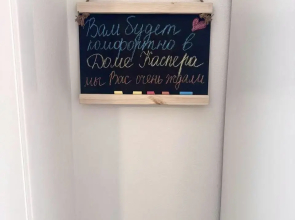 Вам будет
комфортно в
Доме Каспера
мы Вас очень ждали